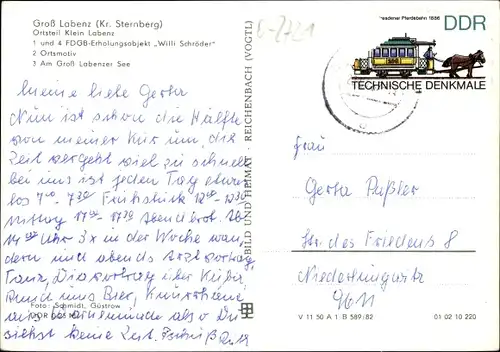 Groß Labenz (Kr. Sternberg)
Ortsteil Klein Labenz
1 und 4 FDGB-Erholungsobjekt „Willi Schröder"
2 Ortsmotiv
3 Am Groß Labenzer See
Meine liebe Gerta
Nun ist schon die Hälfte
von meiner Kur um, die
Zeit vergeht viel zu schnell
bei uns ist jeden Tag etwas
los 7⁰⁰ - 7³⁰ Frühstück 12⁰⁰ - 12³⁰
Mittag 17⁰⁰ - 17³⁰ Abendbrot. Ab
14⁰⁰ Uhr 3x in der Woche wan,
dern und abends Arztvortrag,
Tanz, Diavortrag über Kuba,
Rund ums Bier,
aus also Du
siehst keine Zeit.
Foto: Schmidt, Güstrow
BILD UND HEIMAT · REICHENBACH (VOGTL)
Dresdener Pferdebahn 1886
DDR
TECHNISCHE DENKMALE
Frau
Gerta Püßler
Str. des Friedens 8
9611
V 11 50 A 1 B 589/82
01 02 10 220